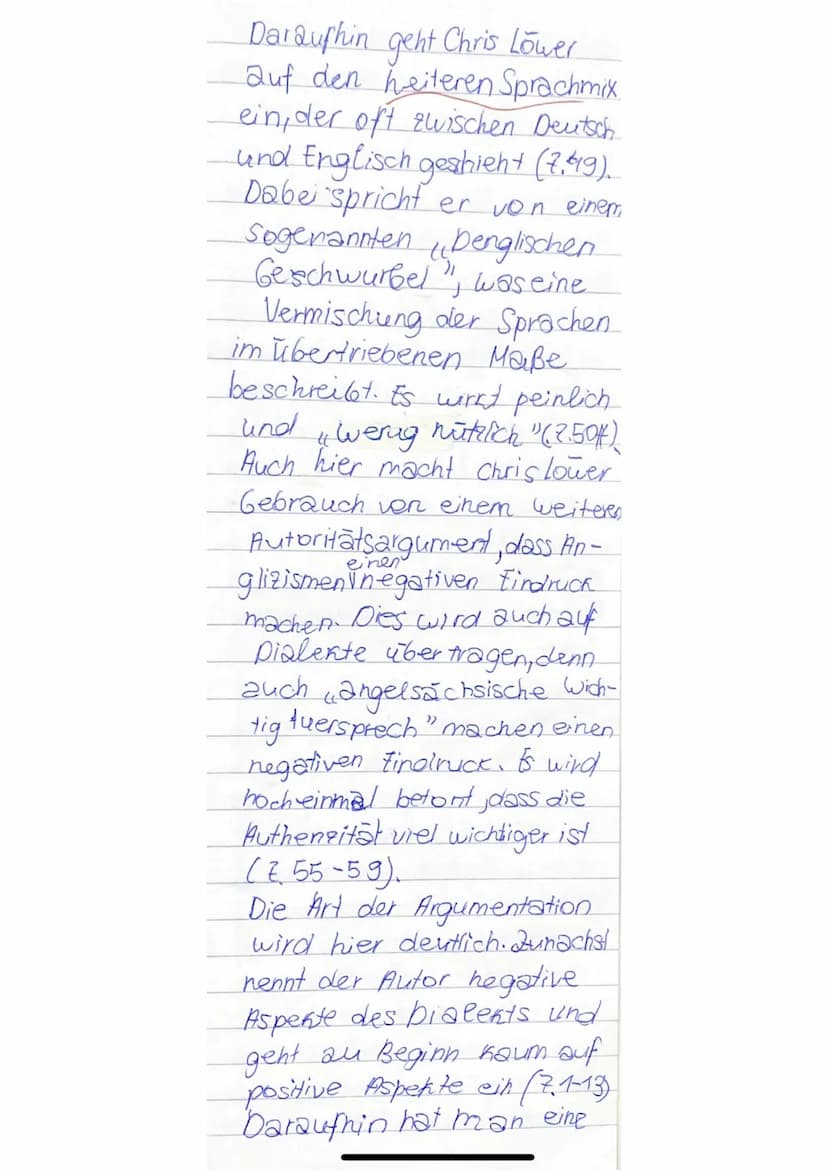 Daraufhin geht Chris Löwer
auf den heiteren Sprachmix
ein, der oft zwischen Deutsch
und Englisch geshieht (Z.49).
Dabei spricht er von einem
sogenannten „Denglischen
Geschwurbel", was eine
Vermischung der Sprachen
im übertriebenen Maße
beschreibt. Es wirkt peinlich
und „wenig nützlich" (Z.50ff).
Auch hier macht Chris Löwer
Gebrauch von einem weiteren
Autoritätsargument, dass An-
einen
glizismen negativen Eindruck
machen. Dies wird auch auf
Dialekte übertragen, denn
auch „angelsächsische Wich-
tigtuersprech" machen einen
negativen Eindruck. Es wird
nocheinmal betont, dass die
Authenzität viel wichtiger ist
(Z. 55-59).
Die Art der Argumentation
wird hier deutlich. Zunächst
nennt der Autor negative
Aspekte des Dialekts und
geht zu Beginn kaum auf
positive Aspekte ein (Z.1-13)
Daraufhin hat man eine